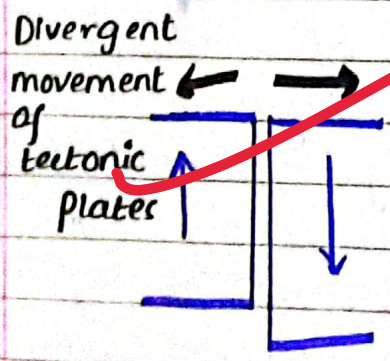 Divergent
movement
of
tectonic
plates